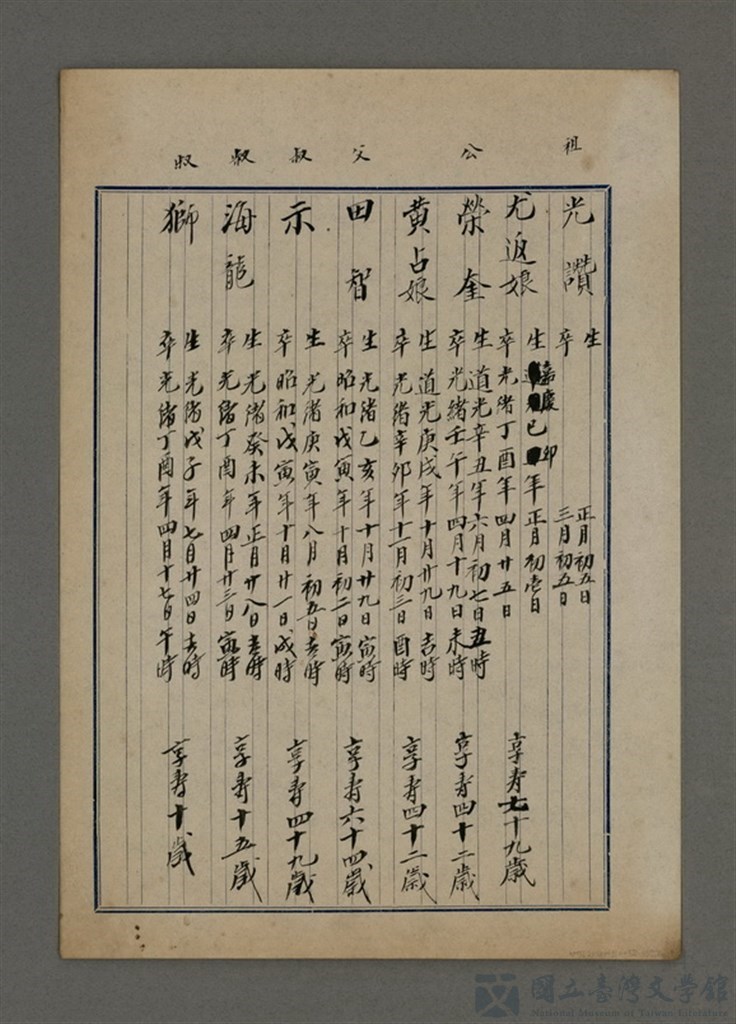 祖
光讚
生 正月初五日
卒 三月初五日
尤返娘
生嘉慶己卯年正月初壱日
卒光緒丁酉年四月廿五日
享寿七十九歲
公
榮奎
生道光辛丑年六月初七日丑時
卒光緒壬午年四月十九日未時
享寿四十二歲
黄占娘
生道光庚戌年十月廿九日吉時
卒光緒辛卯年十一月初三日酉時
享寿四十二歲
父
田智
生光緒乙亥年十月廿九日寅時
卒昭和戊寅年十月初二日寅時
享寿六十四歲
叔
示
生光緒庚寅年八月初五日吉時
卒昭和戊寅年十月廿一日戌時
享寿四十九歲
叔
海龍
生光緒癸未年正月廿八日吉時
卒光緒丁酉年四月廿三日寅時
享寿十五歲
叔
獅
生光緒戊子年七月廿四日吉時
卒光緒丁酉年四月十七日午時
享寿十歲
國立臺灣文学館
National Museum of Taiwan Literature